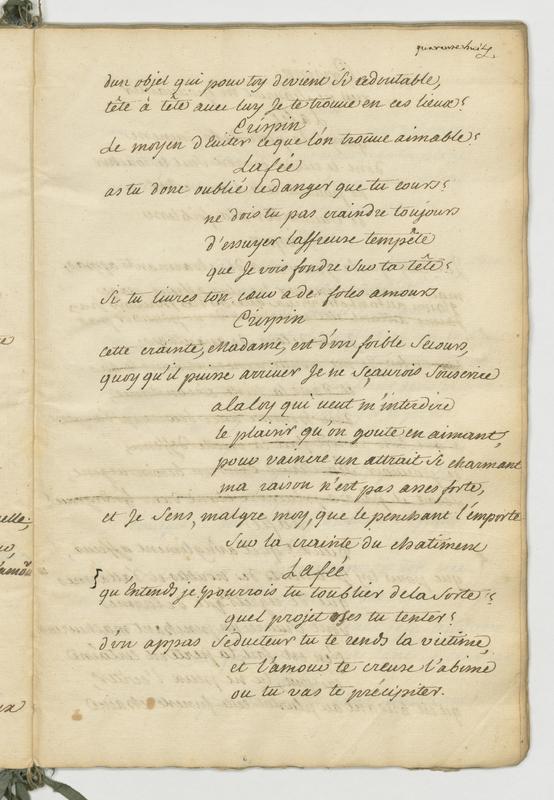 quarante huit,
dun objet qui pour toy devient si redoutable,
tête à tête avec luy Je te trouve en ces lieux?
Crispin
Le moyen d'Eviter ce que l'on trouve aimable?
La fée
as tu donc oublié le danger que tu cours?
ne dois tu pas craindre toujours
d'essuyer l'affreuse tempête
que Je vois fondre sur ta tête?
Si tu livres ton cœur a de foles amours
Crispin
cette crainte, Madame, est d'un foible secours,
quoy qu'il puisse arriver Je ne sçaurois souscrire
a la loy qui veut m'interdire
le plaisir qu'on goute en aimant,
pour vaincre un attrait si charmant
ma raison n'est pas asses forte,
et Je sens, malgre moy, que le penchant l'emporte
sur la crainte du chatiment
La fée
qu'Entends je, pourrois tu t'oublier de la sorte?
quel projet oses tu tenter?
d'un appas séducteur tu te rends la victime,
et l'amour te creuse l'abime
ou tu vas te précipiter.